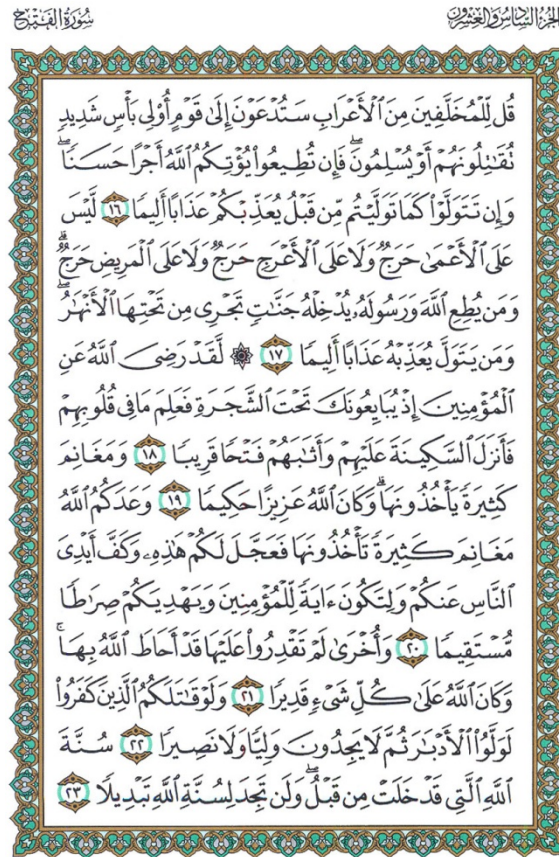 سُورَةُ الفَتْحِ
الجُزْءُ السَّادِسُ وَالعِشْرُونَ
قُل لِّلْمُخَلَّفِينَ مِنَ ٱلْأَعْرَابِ سَتُدْعَوْنَ إِلَىٰ قَوْمٍ أُو۟لِى بَأْسٍ شَدِيدٍ
تُقَـٰتِلُونَهُمْ أَوْ يُسْلِمُونَ ۖ فَإِن تُطِيعُوا۟ يُؤْتِكُمُ ٱللَّهُ أَجْرًا حَسَنًا ۖ
وَإِن تَتَوَلَّوْا۟ كَمَا تَوَلَّيْتُم مِّن قَبْلُ يُعَذِّبْكُمْ عَذَابًا أَلِيمًا ١٦ لَّيْسَ
عَلَى ٱلْأَعْمَىٰ حَرَجٌ وَلَا عَلَى ٱلْأَعْرَجِ حَرَجٌ وَلَا عَلَى ٱلْمَرِيضِ حَرَجٌ ۗ
وَمَن يُطِعِ ٱللَّهَ وَرَسُولَهُۥ يُدْخِلْهُ جَنَّـٰتٍ تَجْرِى مِن تَحْتِهَا ٱلْأَنْهَـٰرُ ۖ
وَمَن يَتَوَلَّ يُعَذِّبْهُ عَذَابًا أَلِيمًا ١٧ ۞ لَّقَدْ رَضِىَ ٱللَّهُ عَنِ
ٱلْمُؤْمِنِينَ إِذْ يُبَايِعُونَكَ تَحْتَ ٱلشَّجَرَةِ فَعَلِمَ مَا فِى قُلُوبِهِمْ
فَأَنزَلَ ٱلسَّكِينَةَ عَلَيْهِمْ وَأَثَـٰبَهُمْ فَتْحًا قَرِيبًا ١٨ وَمَغَانِمَ
كَثِيرَةً يَأْخُذُونَهَا ۗ وَكَانَ ٱللَّهُ عَزِيزًا حَكِيمًا ١٩ وَعَدَكُمُ ٱللَّهُ
مَغَانِمَ كَثِيرَةً تَأْخُذُونَهَا فَعَجَّلَ لَكُمْ هَـٰذِهِۦ وَكَفَّ أَيْدِىَ
ٱلنَّاسِ عَنكُمْ وَلِتَكُونَ ءَايَةً لِّلْمُؤْمِنِينَ وَيَهْدِيَكُمْ صِرَٰطًا
مُّسْتَقِيمًا ٢٠ وَأُخْرَىٰ لَمْ تَقْدِرُوا۟ عَلَيْهَا قَدْ أَحَاطَ ٱللَّهُ بِهَا ۚ
وَكَانَ ٱللَّهُ عَلَىٰ كُلِّ شَىْءٍ قَدِيرًا ٢١ وَلَوْ قَـٰتَلَكُمُ ٱلَّذِينَ كَفَرُوا۟
لَوَلَّوُا۟ ٱلْأَدْبَـٰرَ ثُمَّ لَا يَجِدُونَ وَلِيًّا وَلَا نَصِيرًا ٢٢ سُنَّةَ
ٱللَّهِ ٱلَّتِى قَدْ خَلَتْ مِن قَبْلُ ۖ وَلَن تَجِدَ لِسُنَّةِ ٱللَّهِ تَبْدِيلًا ٢٣